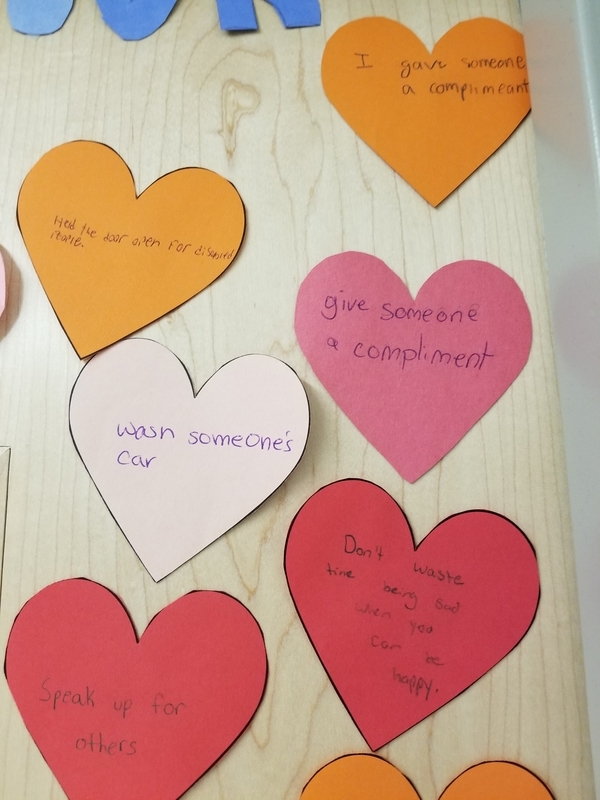 I gave someone
a complimeant
Held the door open for disabled
people.
give someone
a compliment
wash someone's
car
Don't waste
time being sad
when you
can be
happy.
Speak up for
others